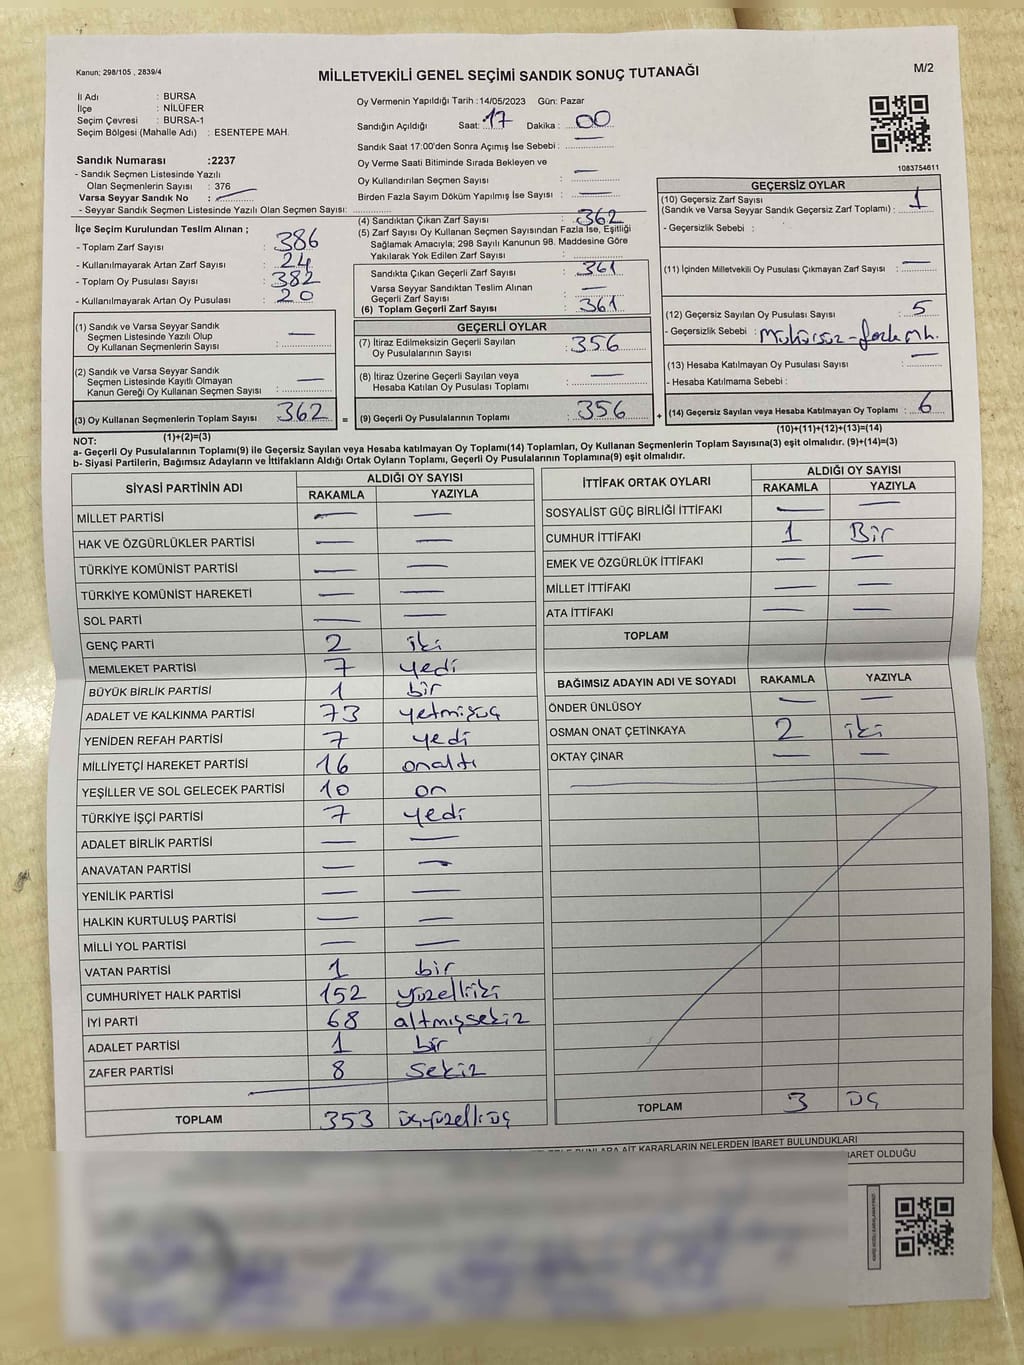 Kanun; 298/105 , 2839/4
MİLLETVEKİLİ GENEL SEÇİMİ SANDIK SONUÇ TUTANAĞI
M/2
İl Adı : BURSA
İlçe : NİLÜFER
Seçim Çevresi : BURSA-1
Seçim Bölgesi (Mahalle Adı) : ESENTEPE MAH.
Sandık Numarası :2237
- Sandık Seçmen Listesinde Yazılı
Olan Seçmenlerin Sayısı : 376
Varsa Seyyar Sandık No : —
- Seyyar Sandık Seçmen Listesinde Yazılı Olan Seçmen Sayısı:
İlçe Seçim Kurulundan Teslim Alınan ;
- Toplam Zarf Sayısı : 386
- Kullanılmayarak Artan Zarf Sayısı : 24
- Toplam Oy Pusulası Sayısı : 382
- Kullanılmayarak Artan Oy Pusulası : 20
(1) Sandık ve Varsa Seyyar Sandık
Seçmen Listesinde Yazılı Olup
Oy Kullanan Seçmenlerin Sayısı : —
(2) Sandık ve Varsa Seyyar Sandık
Seçmen Listesinde Kayıtlı Olmayan
Kanun Gereği Oy Kullanan Seçmen Sayısı : —
(3) Oy Kullanan Seçmenlerin Toplam Sayısı : 362
(1)+(2)=(3)
Oy Vermenin Yapıldığı Tarih :14/05/2023 Gün: Pazar
Sandığın Açıldığı Saat: 17 Dakika : 00
Sandık Saat 17:00'den Sonra Açımış İse Sebebi : —
Oy Verme Saati Bitiminde Sırada Bekleyen ve
Oy Kullandırılan Seçmen Sayısı : —
Birden Fazla Sayım Döküm Yapılmış İse Sayısı : —
(4) Sandıktan Çıkan Zarf Sayısı : 362
(5) Zarf Sayısı Oy Kullanan Seçmen Sayısından Fazla İse, Eşitliği
Sağlamak Amacıyla; 298 Sayılı Kanunun 98. Maddesine Göre
Yakılarak Yok Edilen Zarf Sayısı :
Sandıkta Çıkan Geçerli Zarf Sayısı : 361
Varsa Seyyar Sandıktan Teslim Alınan
Geçerli Zarf Sayısı : —
(6) Toplam Geçerli Zarf Sayısı : 361
GEÇERLİ OYLAR
(7) İtiraz Edilmeksizin Geçerli Sayılan
Oy Pusulalarının Sayısı : 356
(8) İtiraz Üzerine Geçerli Sayılan veya
Hesaba Katılan Oy Pusulası Toplamı : —
= (9) Geçerli Oy Pusulalarının Toplamı : 356
1083754611
GEÇERSİZ OYLAR
(10) Geçersiz Zarf Sayısı
(Sandık ve Varsa Seyyar Sandık Geçersiz Zarf Toplamı) : 1
- Geçersizlik Sebebi :
(11) İçinden Milletvekili Oy Pusulası Çıkmayan Zarf Sayısı : —
(12) Geçersiz Sayılan Oy Pusulası Sayısı : 5
- Geçersizlik Sebebi : Mühürsüz - fazla mh.
(13) Hesaba Katılmayan Oy Pusulası Sayısı : —
- Hesaba Katılmama Sebebi :
+ (14) Geçersiz Sayılan veya Hesaba Katılmayan Oy Toplamı : 6
(10)+(11)+(12)+(13)=(14)
NOT:
a- Geçerli Oy Pusulalarının Toplamı(9) ile Geçersiz Sayılan veya Hesaba katılmayan Oy Toplamı(14) Toplamları, Oy Kullanan Seçmenlerin Toplam Sayısına(3) eşit olmalıdır. (9)+(14)=(3)
b- Siyasi Partilerin, Bağımsız Adayların ve İttifakların Aldığı Ortak Oyların Toplamı, Geçerli Oy Pusulalarının Toplamına(9) eşit olmalıdır.
SİYASİ PARTİNİN ADI ALDIĞI OY SAYISI
RAKAMLA YAZIYLA
MİLLET PARTİSİ — —
HAK VE ÖZGÜRLÜKLER PARTİSİ — —
TÜRKİYE KOMÜNİST PARTİSİ — —
TÜRKİYE KOMÜNİST HAREKETİ — —
SOL PARTİ — —
GENÇ PARTİ 2 iki
MEMLEKET PARTİSİ 7 yedi
BÜYÜK BİRLİK PARTİSİ 1 bir
ADALET VE KALKINMA PARTİSİ 73 yetmişüç
YENİDEN REFAH PARTİSİ 7 yedi
MİLLİYETÇİ HAREKET PARTİSİ 16 onaltı
YEŞİLLER VE SOL GELECEK PARTİSİ 10 on
TÜRKİYE İŞÇİ PARTİSİ 7 yedi
ADALET BİRLİK PARTİSİ — —
ANAVATAN PARTİSİ — —
YENİLİK PARTİSİ — —
HALKIN KURTULUŞ PARTİSİ — —
MİLLİ YOL PARTİSİ — —
VATAN PARTİSİ 1 bir
CUMHURİYET HALK PARTİSİ 152 yüzelliiki
İYİ PARTİ 68 altmışsekiz
ADALET PARTİSİ 1 bir
ZAFER PARTİSİ 8 sekiz
TOPLAM 353 üçyüzelliüç
İTTİFAK ORTAK OYLARI ALDIĞI OY SAYISI
RAKAMLA YAZIYLA
SOSYALİST GÜÇ BİRLİĞİ İTTİFAKI — —
CUMHUR İTTİFAKI 1 Bir
EMEK VE ÖZGÜRLÜK İTTİFAKI — —
MİLLET İTTİFAKI — —
ATA İTTİFAKI — —
TOPLAM
BAĞIMSIZ ADAYIN ADI VE SOYADI RAKAMLA YAZIYLA
ÖNDER ÜNLÜSOY — —
OSMAN ONAT ÇETİNKAYA 2 iki
OKTAY ÇINAR — —
TOPLAM 3 üç
BUNLARA AİT KARARLARIN NELERDEN İBARET BULUNDUKLARI
İBARET OLDUĞU